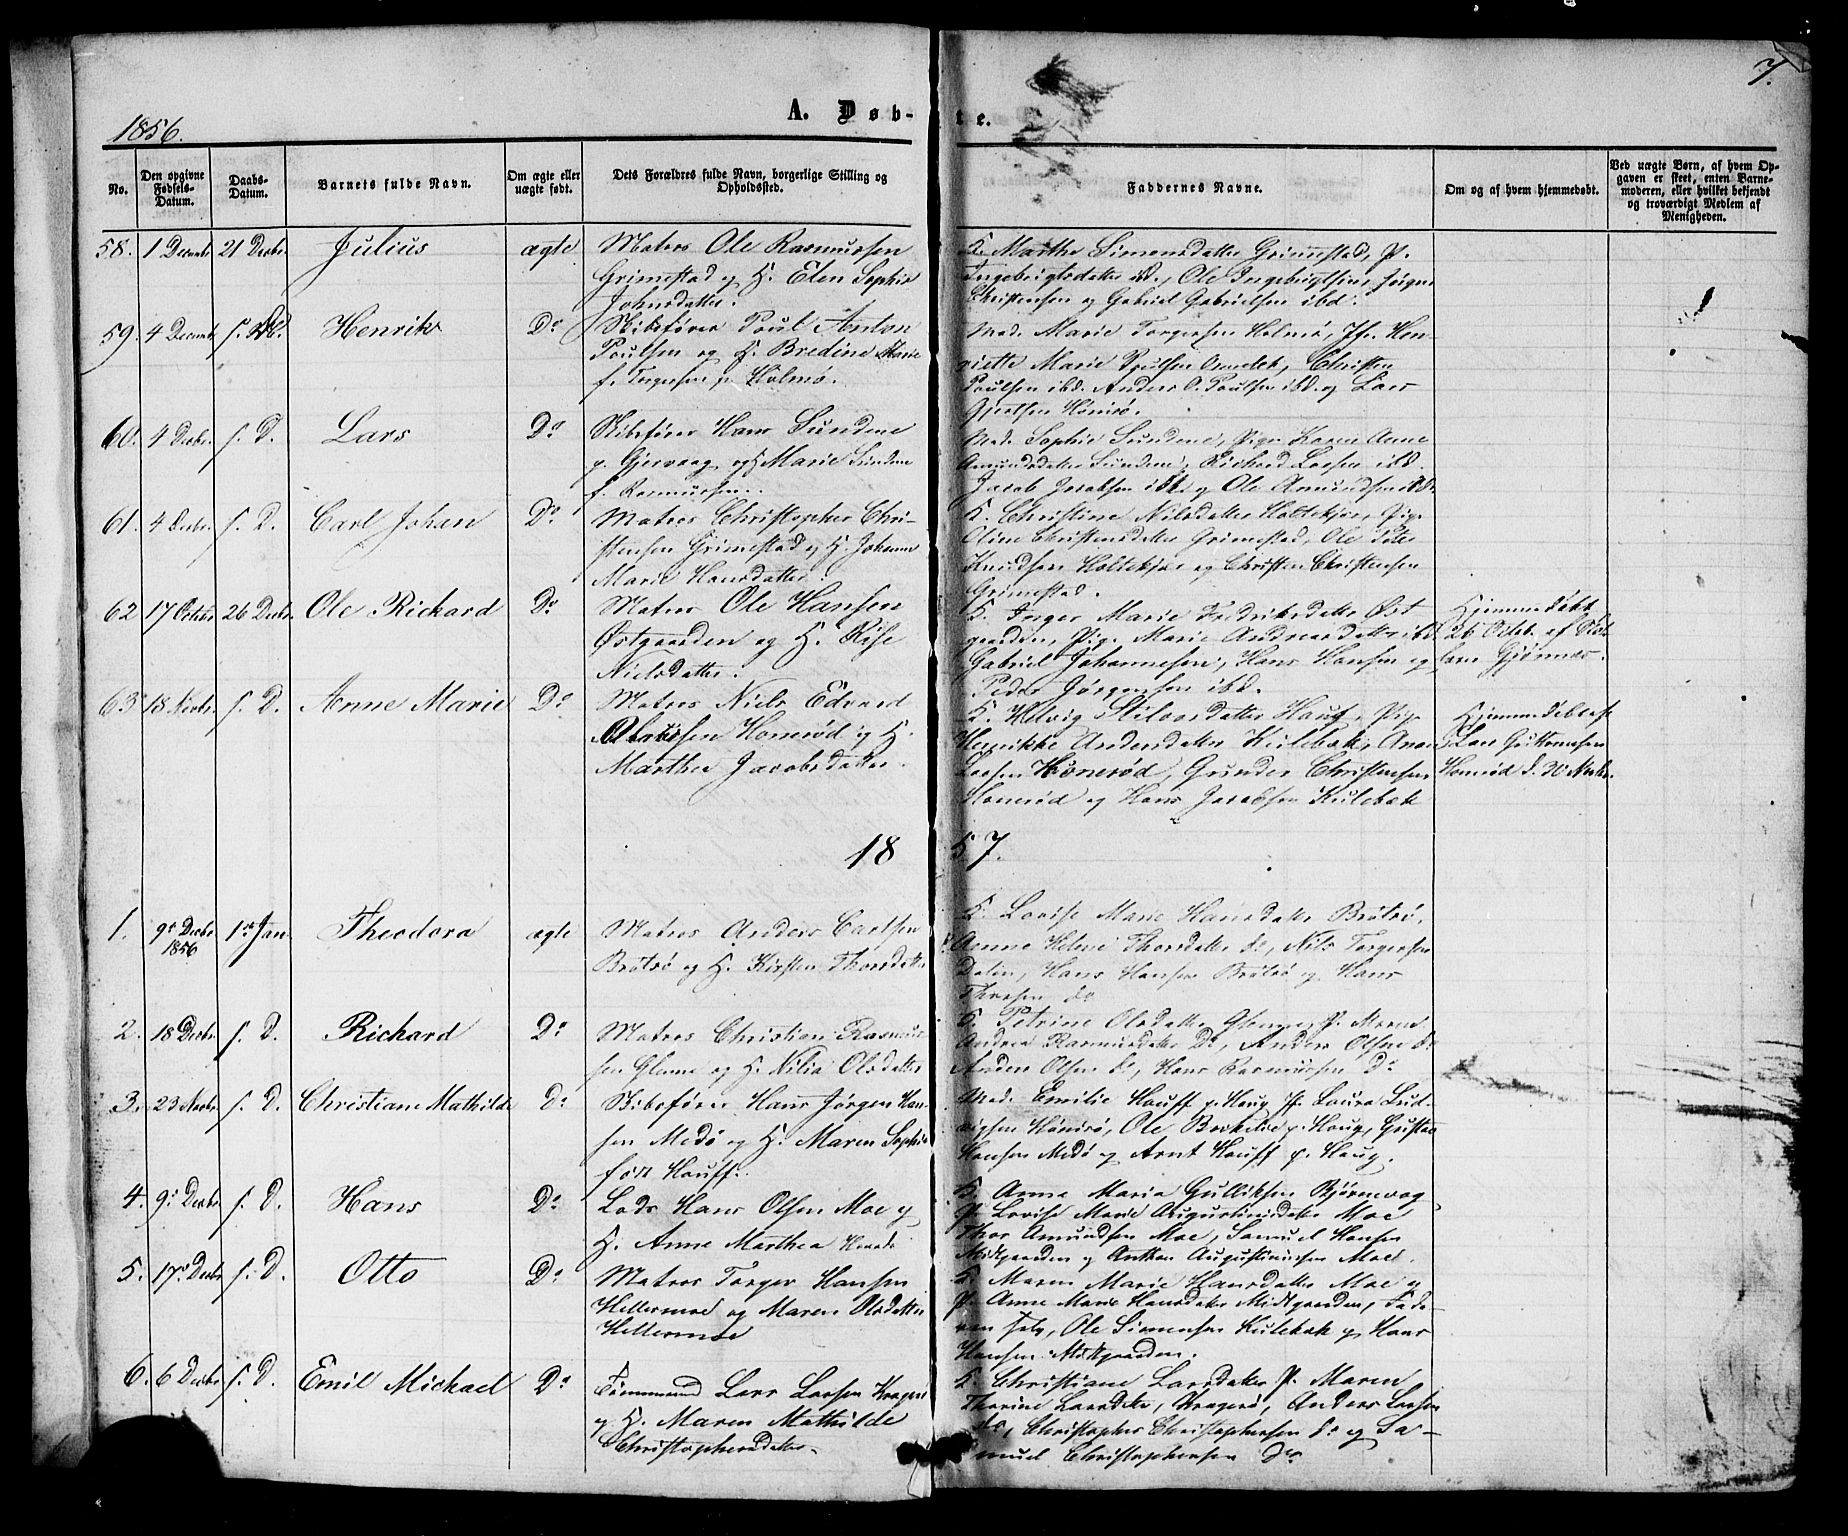 7.
1856.
A. Døb-
te.
No.
Den opgivne Fødsels-Datum.
Daabs-Datum.
Barnets fulde Navn.
Om ægte eller uægte født.
Dets Forældres fulde Navn, borgerlige Stilling og Opholdssted.
Faddernes Navne.
Om og af hvem hjemmedøbt.
Ved uægte Børn, af hvem Opgaven er skeet, enten Barnemoderen, eller hvilket bekjendt og troværdigt Medlem af Menigheden.
58. 1 Decemb 21 Decbr. Julius ægte Matros Ole Rasmussen
Grimestad og H. Elen Sophie
Johnsdatter.
K. Marthe Simensdatter Grimestad, P.
Ingebrigtsdatter ibd., Ole Ingebrigtsen, Jørgen
Christensen og Gabriel Gabrielsen ibd.
59. 4 Decemb Henrik Do Skibsfører Poul Anton
Poulsen og H. Bredine Marie
f. Torgersen p. Holmø.
Mad. Marie Torgersen Holmø, Jfr. Hen-
riette Marie Christen
Poulsen ibd. Anders O. Poulsen ibd. og Lars
Gjertsen
60. 4 Decbr. s. D. Lars Do Skibsfører Hans Sundene
p. Gjervaag og H Marie Sundene
f. Rasmussen.
Mad. Sophie Sundene, Pige Karen Anne
Amundsdatter Sundene, Richard Larsen ibd.
Jacob Jacobsen ibd. og Ole Amundsen ibd.
61. 4 Decbr. s. D. Carl Johan Do Matros Christopher Chri-
stensen Grimestad og H. Johanne
Marie Hansdatter.
K. Christine Nilsdatter Holtekjær, Pige
Oline Christensdatter Grimestad, Ole
Knudsen Holtekjær og Christen Christensen
Grimestad.
62 17 Octbr 26 Decbr. Ole Richard Do Matros Ole Hansen
Østgaarden og H.
Nielsdatter.
K. Inger Marie Fredriksdatter Øst
gaarden, Pige Marie Andreasdatter ibd.
Gabriel Johannesen, Hans Hansen og
Peder Jørgensen ibd.
Hjemmedøbt
26 Octb. af
63 18 Novbr. s. D. Anne Marie Do Matros Niels Edvard
Honerød og H.
Marthea Jacobsdatter.
K. Helvig Haug, Pige
Henrikke Andersdatter Kulebæk,
Larsen Hønerød, Gunder Christensen
Honerød og Hans Jacobsen Kulebæk
Hjemmedøbt af
Honerød d. 30 Novbr.
1857.
1. 9de Decbr 1856 1ste Jan Theodora ægte Matros Anders Carlsen
Brøtsø og H. Kirsten Thorsdatter
K. Lovise Marie Hansdatter Brøtsø,
Anne Helene Thorsdatter do, Nils Torgersen
Dalen, Hans Hansen Brøtsø og Hans
Thorsen do
2. 18 Decbr. s. D. Richard Do Matros Christian Rasmus-
sen Glenne og H. Nilia Olsdatter
K. Petrine Olsdatter Glenne, P. Maren
Andrea Rasmusdatter Do, Anders Olsen do
Anders Olsen do, Hans Rasmussen Do
3. 23 Novbr s. D. Christiane Mathilde Do Skibsfører Hans Jørgen Han-
sen Medø og H. Maren Sophie
født Hauff.
Mad. Emilie Hauff p. Haug P. Laura Lud-
vigsen Ole p. Haug, Gustav
Hansen Medø og Arnt Hauff p. Haug.
4. 9de Decbr s. D. Hans Do Lods Hans Olsen Moe og
H. Anne Marthea
K. Anne Maria Gulliksen Bjørnevaag
P. Lovise Marie Augustinusdatter Moe
Thor Amundsen Moe, Samuel Hansen
Midtgaarden og Anthon Augustinussen Moe.
5. 17de Decbr s. D. Otto Do Matros Torger Hansen
Hellermoe og Maren Olsdatter
Hellermoe
K. Maren Marie Hansdatter Moe og
P. Anne Marie Hansdatter Midtgaarden, Fade-
ren selv, Ole Simensen Kulebæk og Hans
Hansen Midtgaarden.
6. 6 Decbr s. D. Emil Michael Do Tømmermand Lars Larsen Kragerø
og H. Maren Mathilde
Christophersdatter.
K. Christiane Larsdatter P. Maren
Thorine Larsdatter, Kragerø, Anders Larsen
do, Christopher Christophersen do og Sa-
muel Christophersen Do